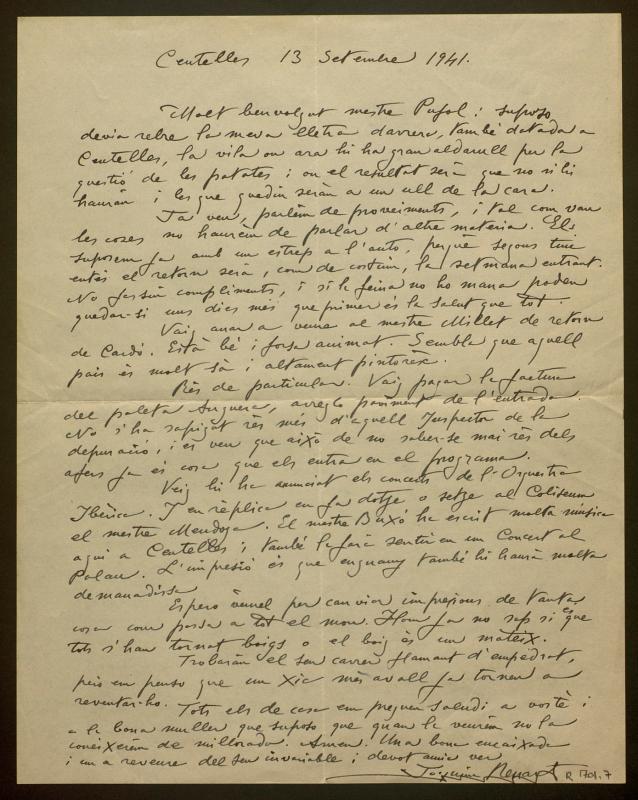 Centelles 13 Setembre 1941.
Molt benvolgut mestre Pujol: suposo
devia rebre la meva lletra darrera, també datada a
Centelles, la vila on ara hi ha gran aldarull per la
questió de les patates; on el resultat serà que no si hi
hauràn i les que quedin seràn a un ull de la cara.
Ja veu, parlèm de proveiments, i tal com van
les coses no haurèm de parlar d'altre materia. Els
suposem ja amb un estrep a l'auto, perquè segons tinc
entès el retorn serà, com de costum, la setmana entrant.
No fassin compliments, i si la feina no ho mana poden
quedar-si uns dies més que primer és la salut que tot.
Vaig anar a veure al mestre Millet de retorn
de Cardó. Està bé i forsa animat. Sembla que aquell
pais és molt sà i altament pintorèsc.
Rès de particular. Vaig pagar la factura
del paleta Anguera, arreglo paviment de l'entrada.
No s'ha sapigut rès més d'aquell Inspector de la
depuració, i es veu que aixó de no saber-se mai rès dels
afers ja és cosa que els entra en el programa.
Veig hi ha anunciat els concerts de l'Orquestra
Ibèrica. I en rèplica en fa dotge o setge al Coliseum
el mestre Mendoza. El mestre Buxó ha escrit molta música
aquí a Centelles i també la farà sentir en un Concert al
Palau. L'impresió és que enguany també hi haurà molta
demanadissa
Espero vèurel per canviar impresions de tanta
cosa com passa a tot el mon. Hom ja no sap si és que
tots s'han tornat boigs o el boig és un mateix.
Trobaràn el seu carrer flamant d'empedrat,
però em penso que un xic més avall ja tornen a
reventar-ho. Tots els de casa em preguen saludi a vostè i
a la bona muller que suposo que quan la veurèm no la
coneixerèm de millorada. Amen. Una bona encaixada
i un a reveure del seu invariable i devot amic
Joaquim Renart
R 1701.7